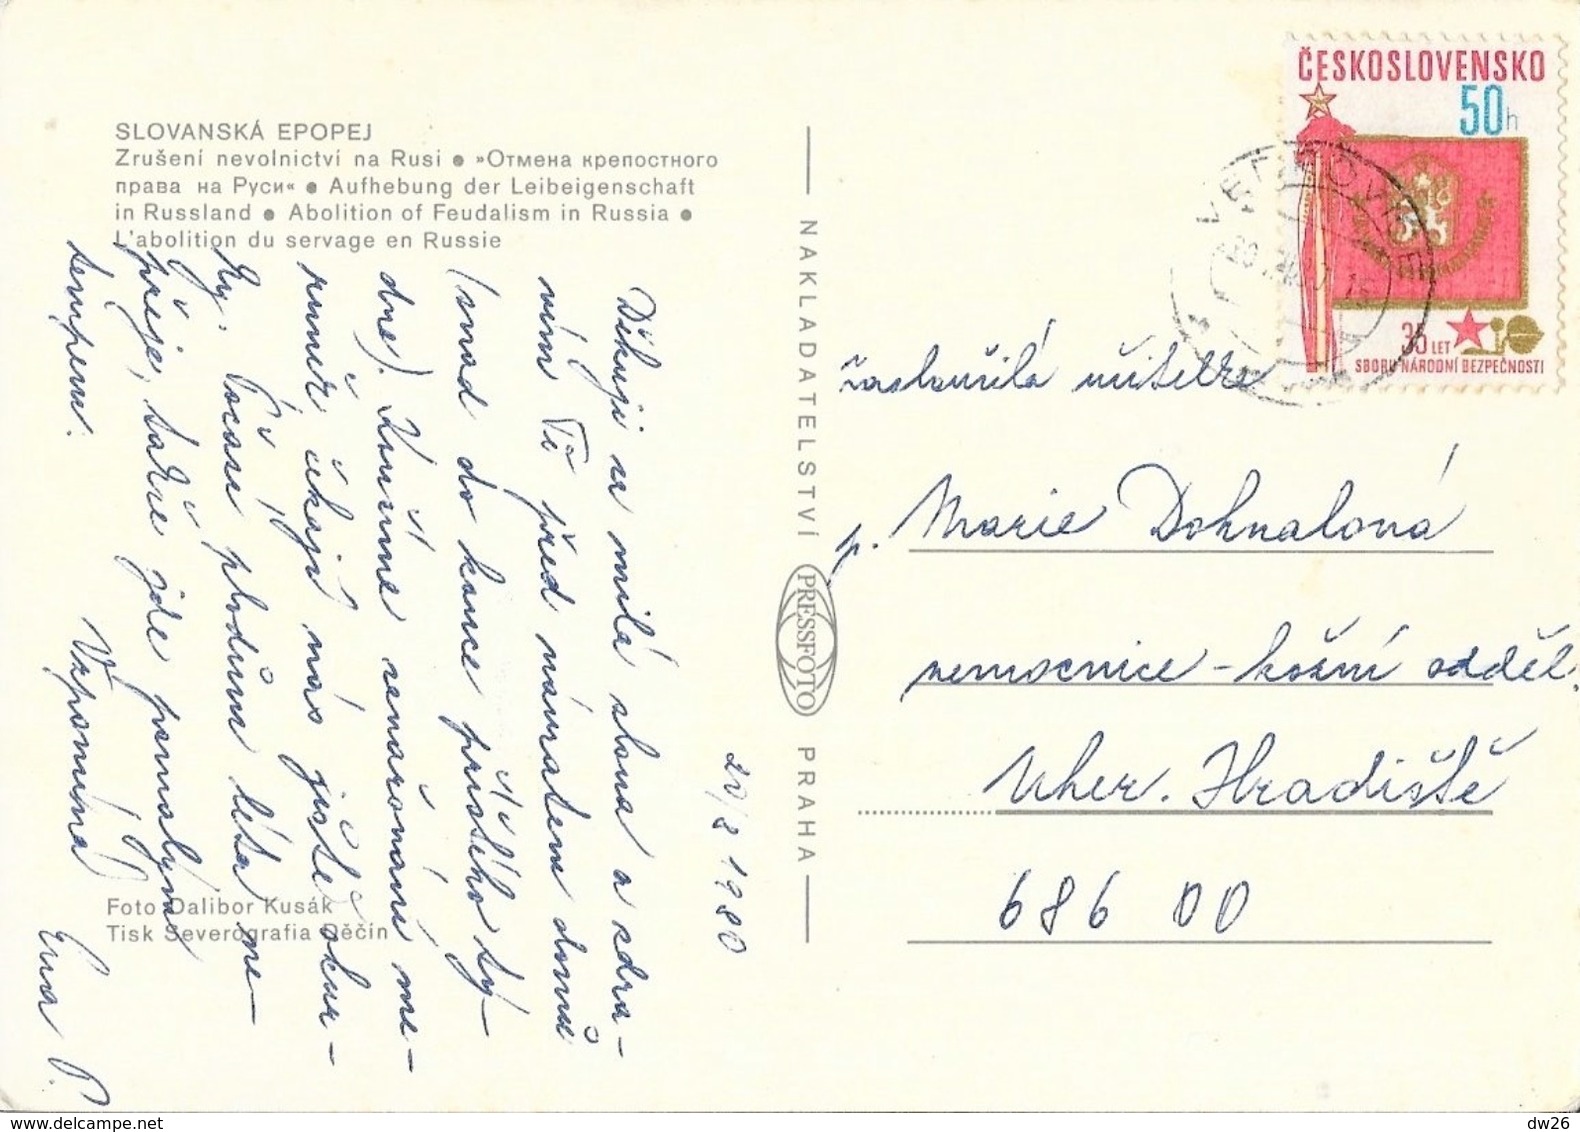 SLOVANSKÁ EPOPEJ
Zrušení nevolnictví na Rusi ● »Отмена крепостного
права на Руси« ● Aufhebung der Leibeigenschaft
in Russland ● Abolition of Feudalism in Russia ●
L'abolition du servage en Russie
20/8 1980
Děkuji za milá slova a zdra-
vím Tě před návratem domů
(snad do konce příštího tý-
dne). Zuříme zavařování me-
runěk čekají nás ještě okur-
ky. Počasí plodům léta ne-
přeje, takže jde pomalým
tempem.
Vzpomíná
Eva P.
Foto Dalibor Kusák
Tisk Severografia Děčín
NAKLADATELSTVÍ PRESSFOTO PRAHA
ČESKOSLOVENSKO
50h
35 LET
SBORU NÁRODNÍ BEZPEČNOSTI
zasloužilá učitelka
p. Marie Dohnalová
nemocnice - kožní odděl.
Uher. Hradiště
686 00
dw26